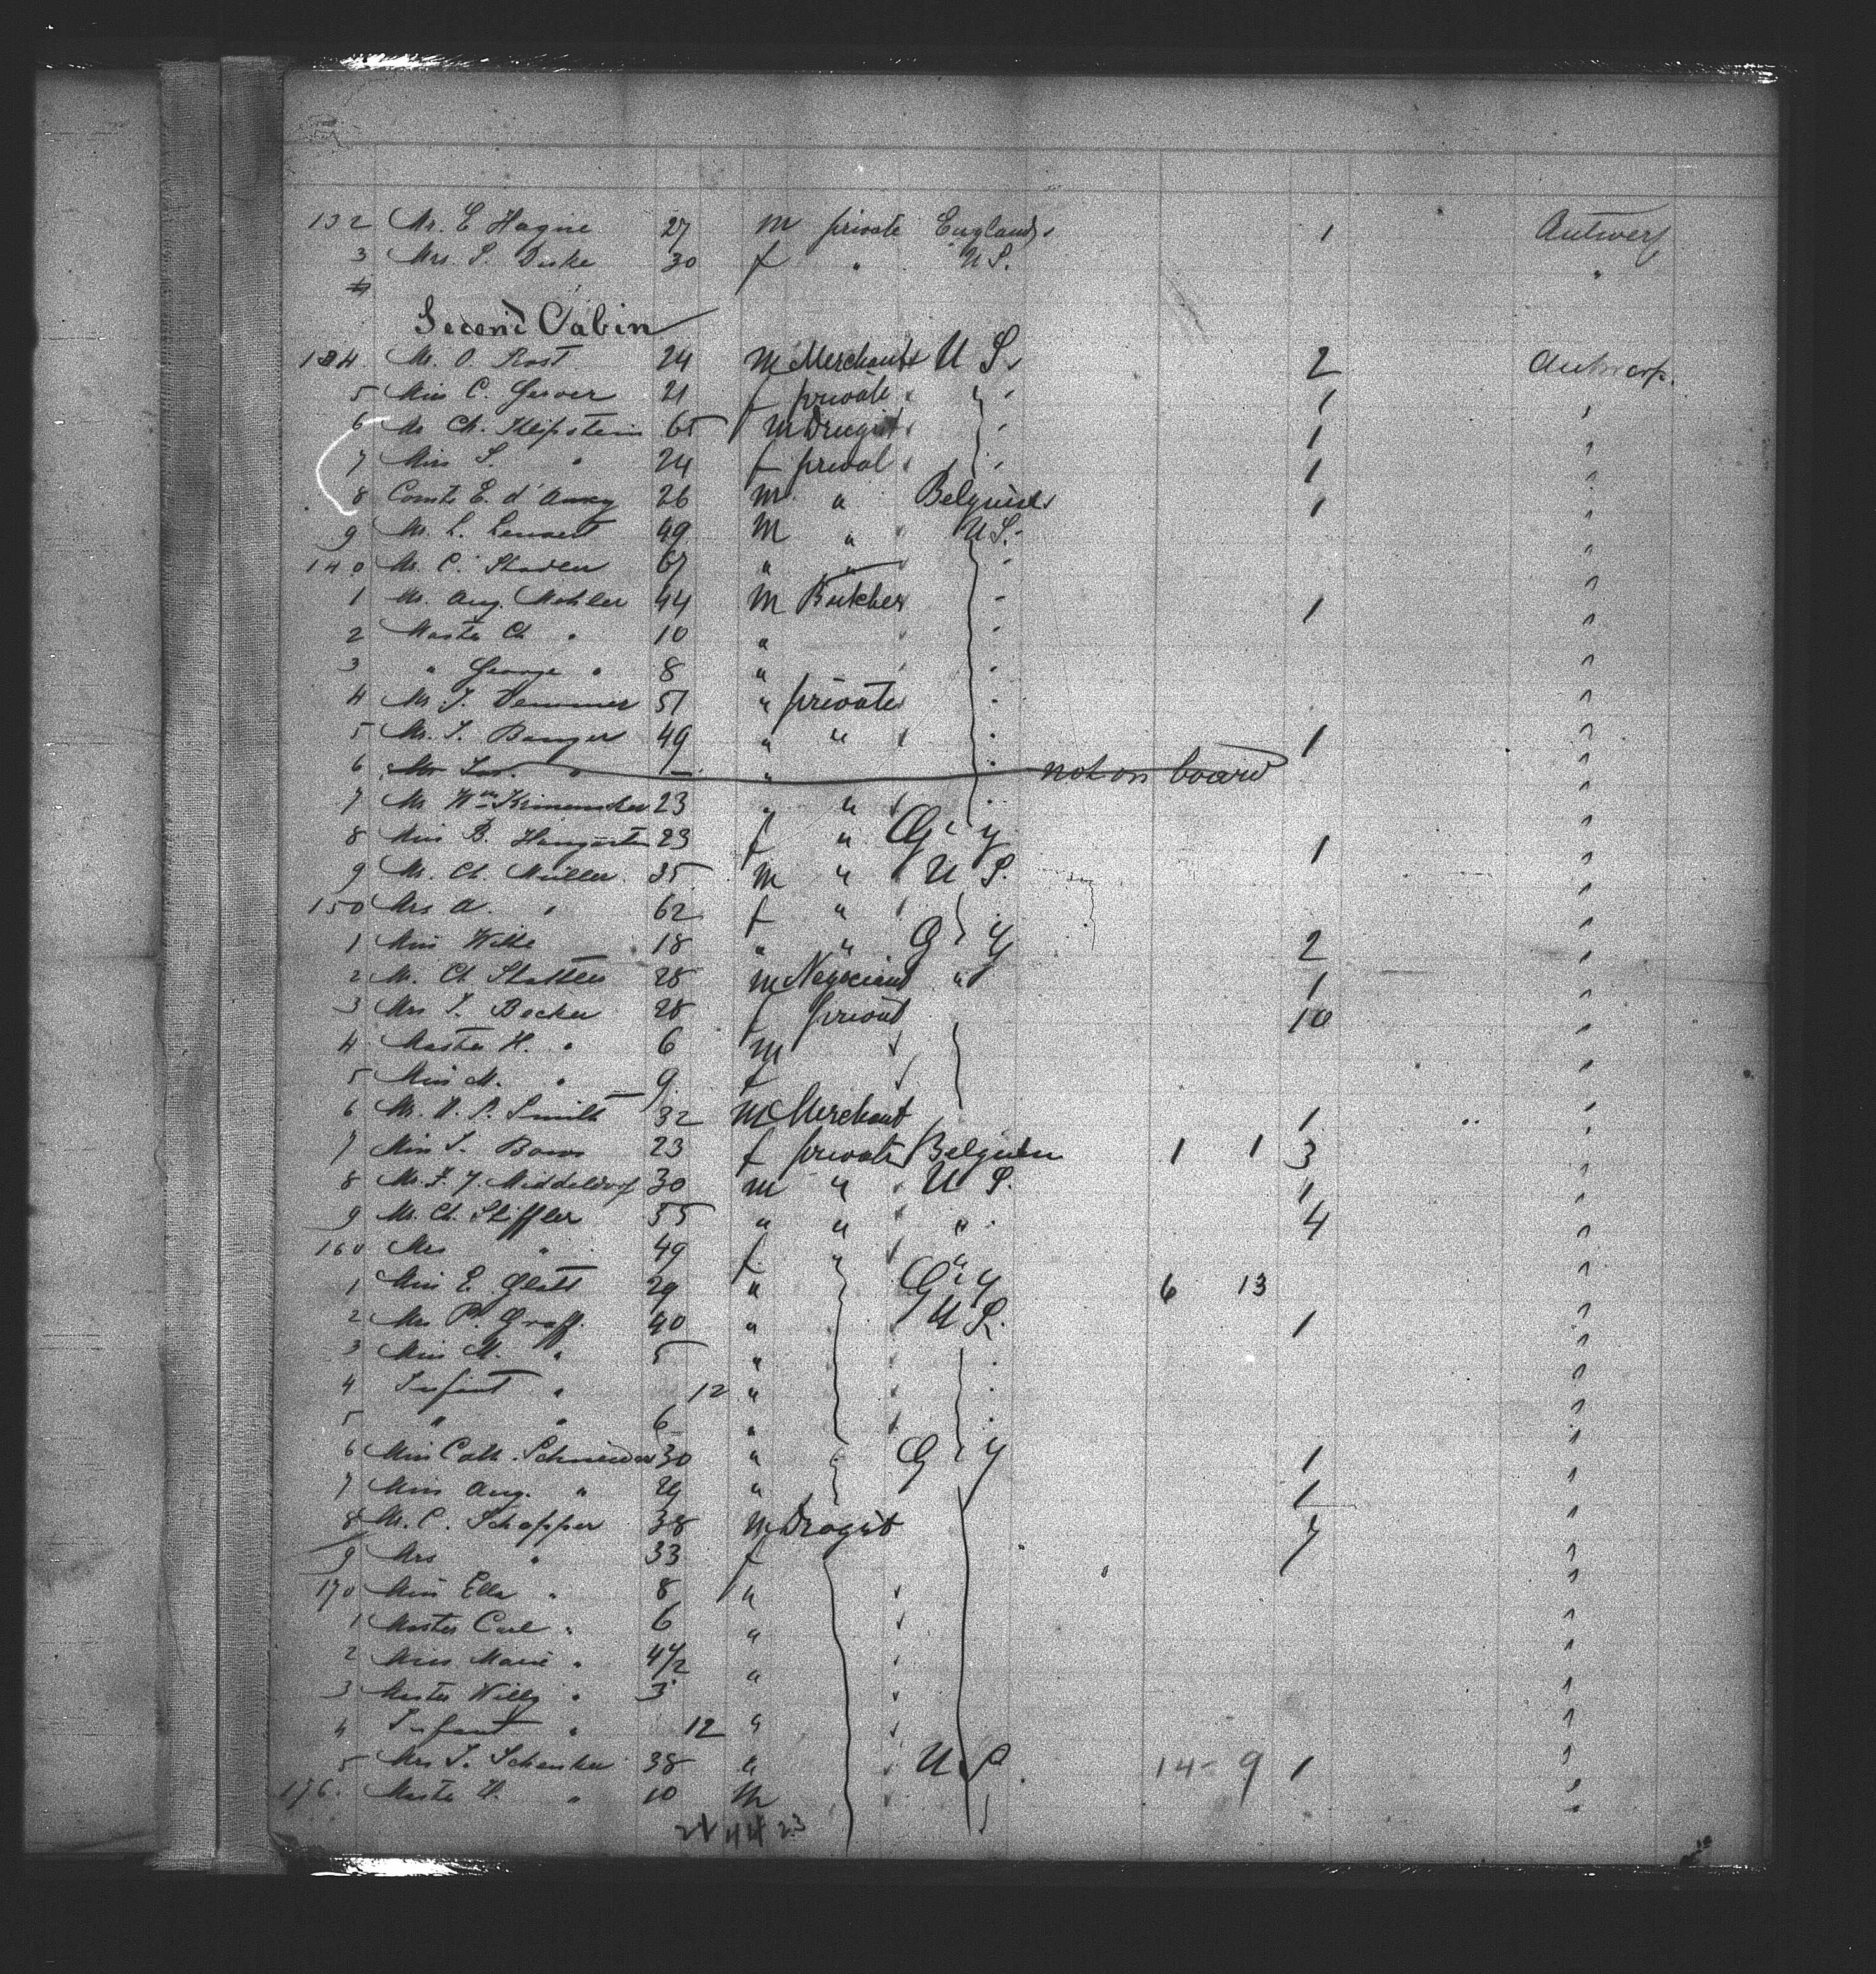 132 Mr. E Hagne 27 m private England 1 Antwerp
3 Mrs. S. Duke 30 f " U S. "
4
Second Cabin
134. M. O. Rost 24 m Merchant U S. 2 Antwerp.
5 Miss C. 21 f private " 1 "
6 Mr Ch. Klipstein 65 m Drugist 1 "
7 Miss S. " 24 f privat 1 "
8 Comte E. d' 26 m " Belgium 1 "
9 M. L. 49 M " U S. "
140 M. C. Staden 67 " " "
1 M. Aug. Mohler 44 M Butcher 1 "
2 Master Ch " 10 " "
3 " George " 8 " "
4 M. J. Demmer 51 " private "
5 Mr. S. Banger 49 " " 1 "
6 " — " not on board "
7 Mr Wm 23 " " "
8 Miss B. 23 f " G y 1 "
9 M. Ch. Müller 35 m " U S. "
150 Mrs A. " 62 f " "
1 Miss Wilke 18 " " G y 2 "
2 M. Ch 28 m Negociant " 1 "
3 Mrs S. Becker 28 f privat 10 "
4 Master H. " 6 m "
5 Miss M. " 9 f "
6 Mr. 32 m Merchant 1 "
7 Miss S. 23 f private Belgium 1 1 3 "
8 Mr. F. J. Middeldorf 30 m " U S. 1 "
9 M. Ch. Stiffler 55 " " " 4 "
160 Mrs " 49 f " " "
1 Miss E. Glatt 29 " G y 6 13 "
2 Mrs P. Graff. 40 " U S. 1 "
3 Miss M. " 5 " "
4 Infant " 12 " "
5 " " 6 " "
6 Miss Cath. Schneider 30 " G y 1 "
7 Miss Aug. " 29 " 1 "
8 M. C. Schapper 38 m Drogist 7 "
9 Mrs " 33 f "
170 Miss Ella " 8 " "
1 Master Carl " 6 " "
2 Miss Marie " 4 1/2 " "
3 Master Willy " 3 " "
4 Infant " 12 " "
5 Mrs S. Schenker 38 " U S. 14 - 9 1 "
176. Master " 10 m "
21 44 23